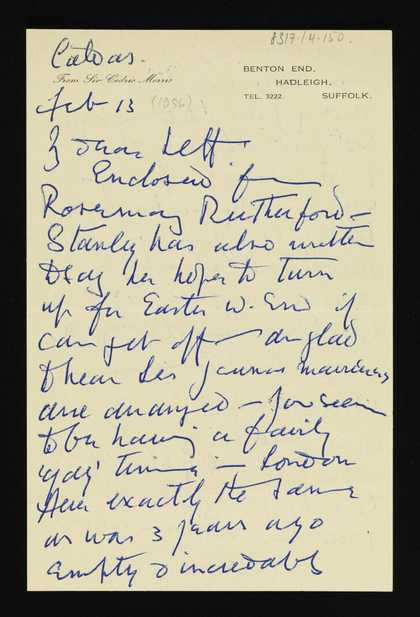 8317.1.4.150.
From Sir Cedric Morris
BENTON END,
HADLEIGH,
TEL. 3222. SUFFOLK.
Feb 13 (1956)
Enclosed from
Rosemary Rutherford –
Stanley has also written
to say he hopes to turn
up for Easter W. End if
can get off – am glad
to hear
are arranged – You seem
to be having a fairly
'gay' time – London
exactly the same
as was 3 years ago
Empty & incredibly